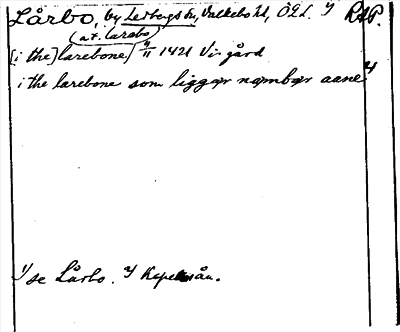 Lårbo, by Ledbergs sn, Valkebo hd, ÖGL. RAP.
(av. larabo)
[i the] larebone 4/11 1421 Vi- gård
i the larebone som liggær næmbær aane 2)
1) se Lårbo. 2) Kapellån.